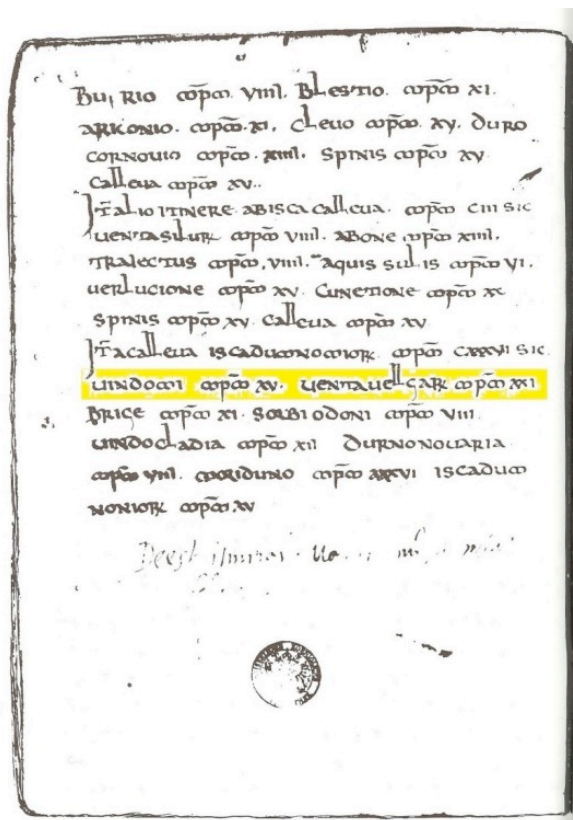 BurRio m̅p̅m̅. VIIII. BLesTio. m̅p̅m̅ XI.
ARIConio. m̅p̅m̅. XI, CLeuo m̅p̅m̅. XV. Duro
CORNOUIO m̅p̅m̅. XIIII. SPINIS m̅p̅m̅ XV
CaLLeua m̅p̅m̅ XV..
IT̅ALIO ITINERE ABISCA CALLEUA. m̅p̅m̅ CIII SIC
UENTASILUR m̅p̅m̅ VIIII. ABONE m̅p̅m̅ XIIII.
TRAIECTUS m̅p̅m̅. VIIII. AQUIS SULIS m̅p̅m̅ VI.
UERLUCIONE m̅p̅m̅ XV. CUNETIONE m̅p̅m̅ XX
SPINIS m̅p̅m̅ XV. CALLEUA m̅p̅m̅ XV
IT̅ACALLEUA ISCADUMNOMIOR m̅p̅m̅ CXXXVI SIC
UINDOMI m̅p̅m̅ XV. UENTAUELLGAR m̅p̅m̅ XXI
BRIGE m̅p̅m̅ XI. SORBIODONI m̅p̅m̅ VIII
UINDOCLADIA m̅p̅m̅ XII DURNONOUARIA
m̅p̅m̅ VIIII. MORIDUNO m̅p̅m̅ XXXVI ISCADUM
NONIOR m̅p̅m̅ XV